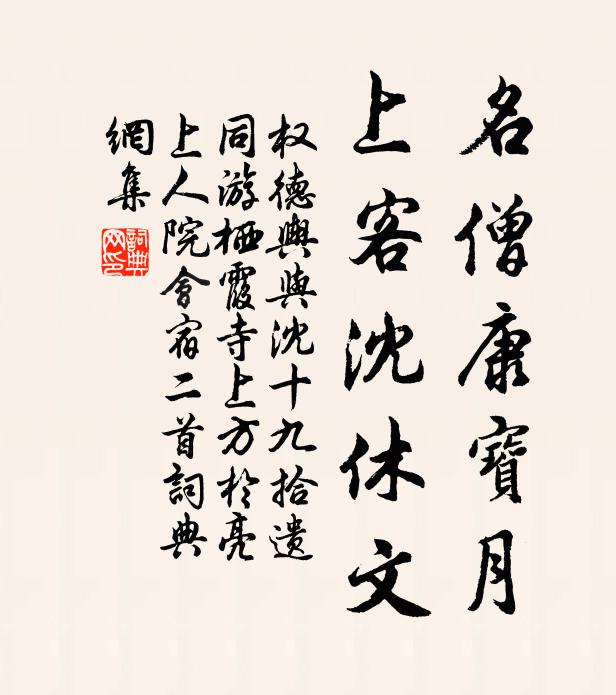 名僧康寶月
上客沈休文
权德輿與沈十九拾遗
同游栖霞寺上方於亮
上人院會宿二首詞典
網集
詞典網印